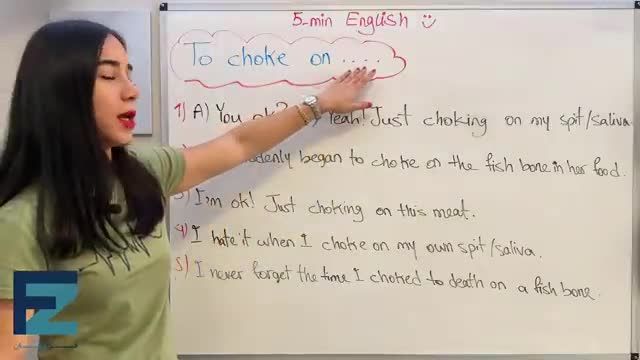 5-min English
To choke on ....
1) A) You ok? Yeah! Just choking on my spit/saliva
began to choke on the fish bone in her food.
3) I'm ok! Just choking on this meat.
4) I hate it when I choke on my own spit/saliva.
5) I never forget the time I choked to death on a fish bone.
EZ